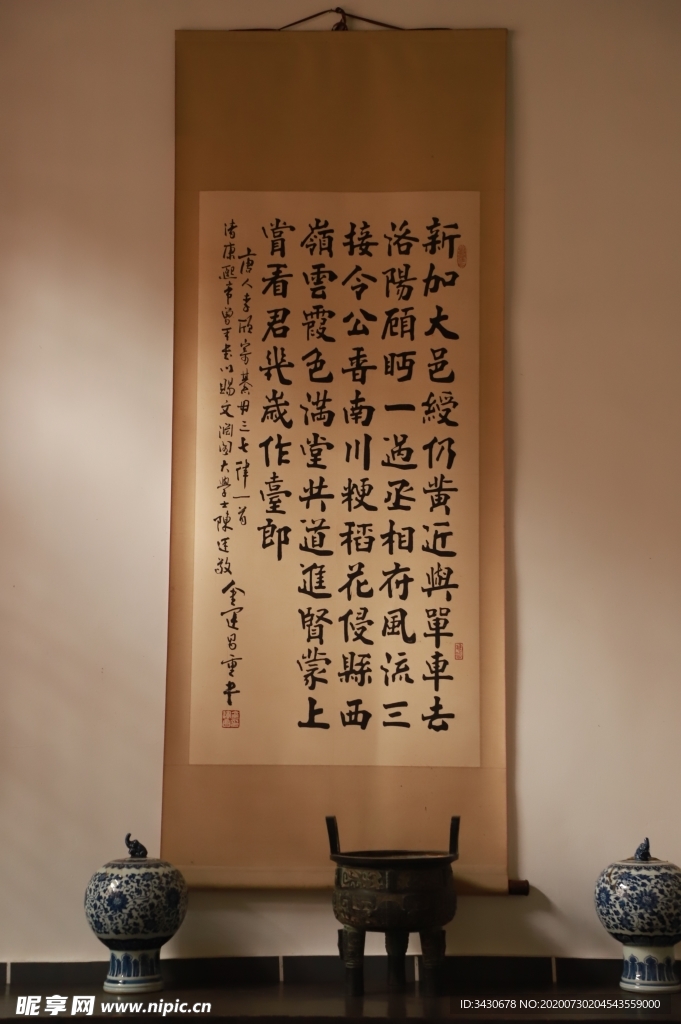 新加大邑綬仍黃近與單車去
洛陽顧眄一過丞相府風流三
接令公香南川粳稻花侵縣西
嶺雲霞色滿堂共道進賢蒙上
賞看君幾歲作臺郎
唐人李頎寄綦毋三七律一首
清康熙帝曾手書以賜文淵閣大學士陳廷敬 金運昌重書
昵享网 www.nipic.cn
ID:3430678 NO:20200730204543559000